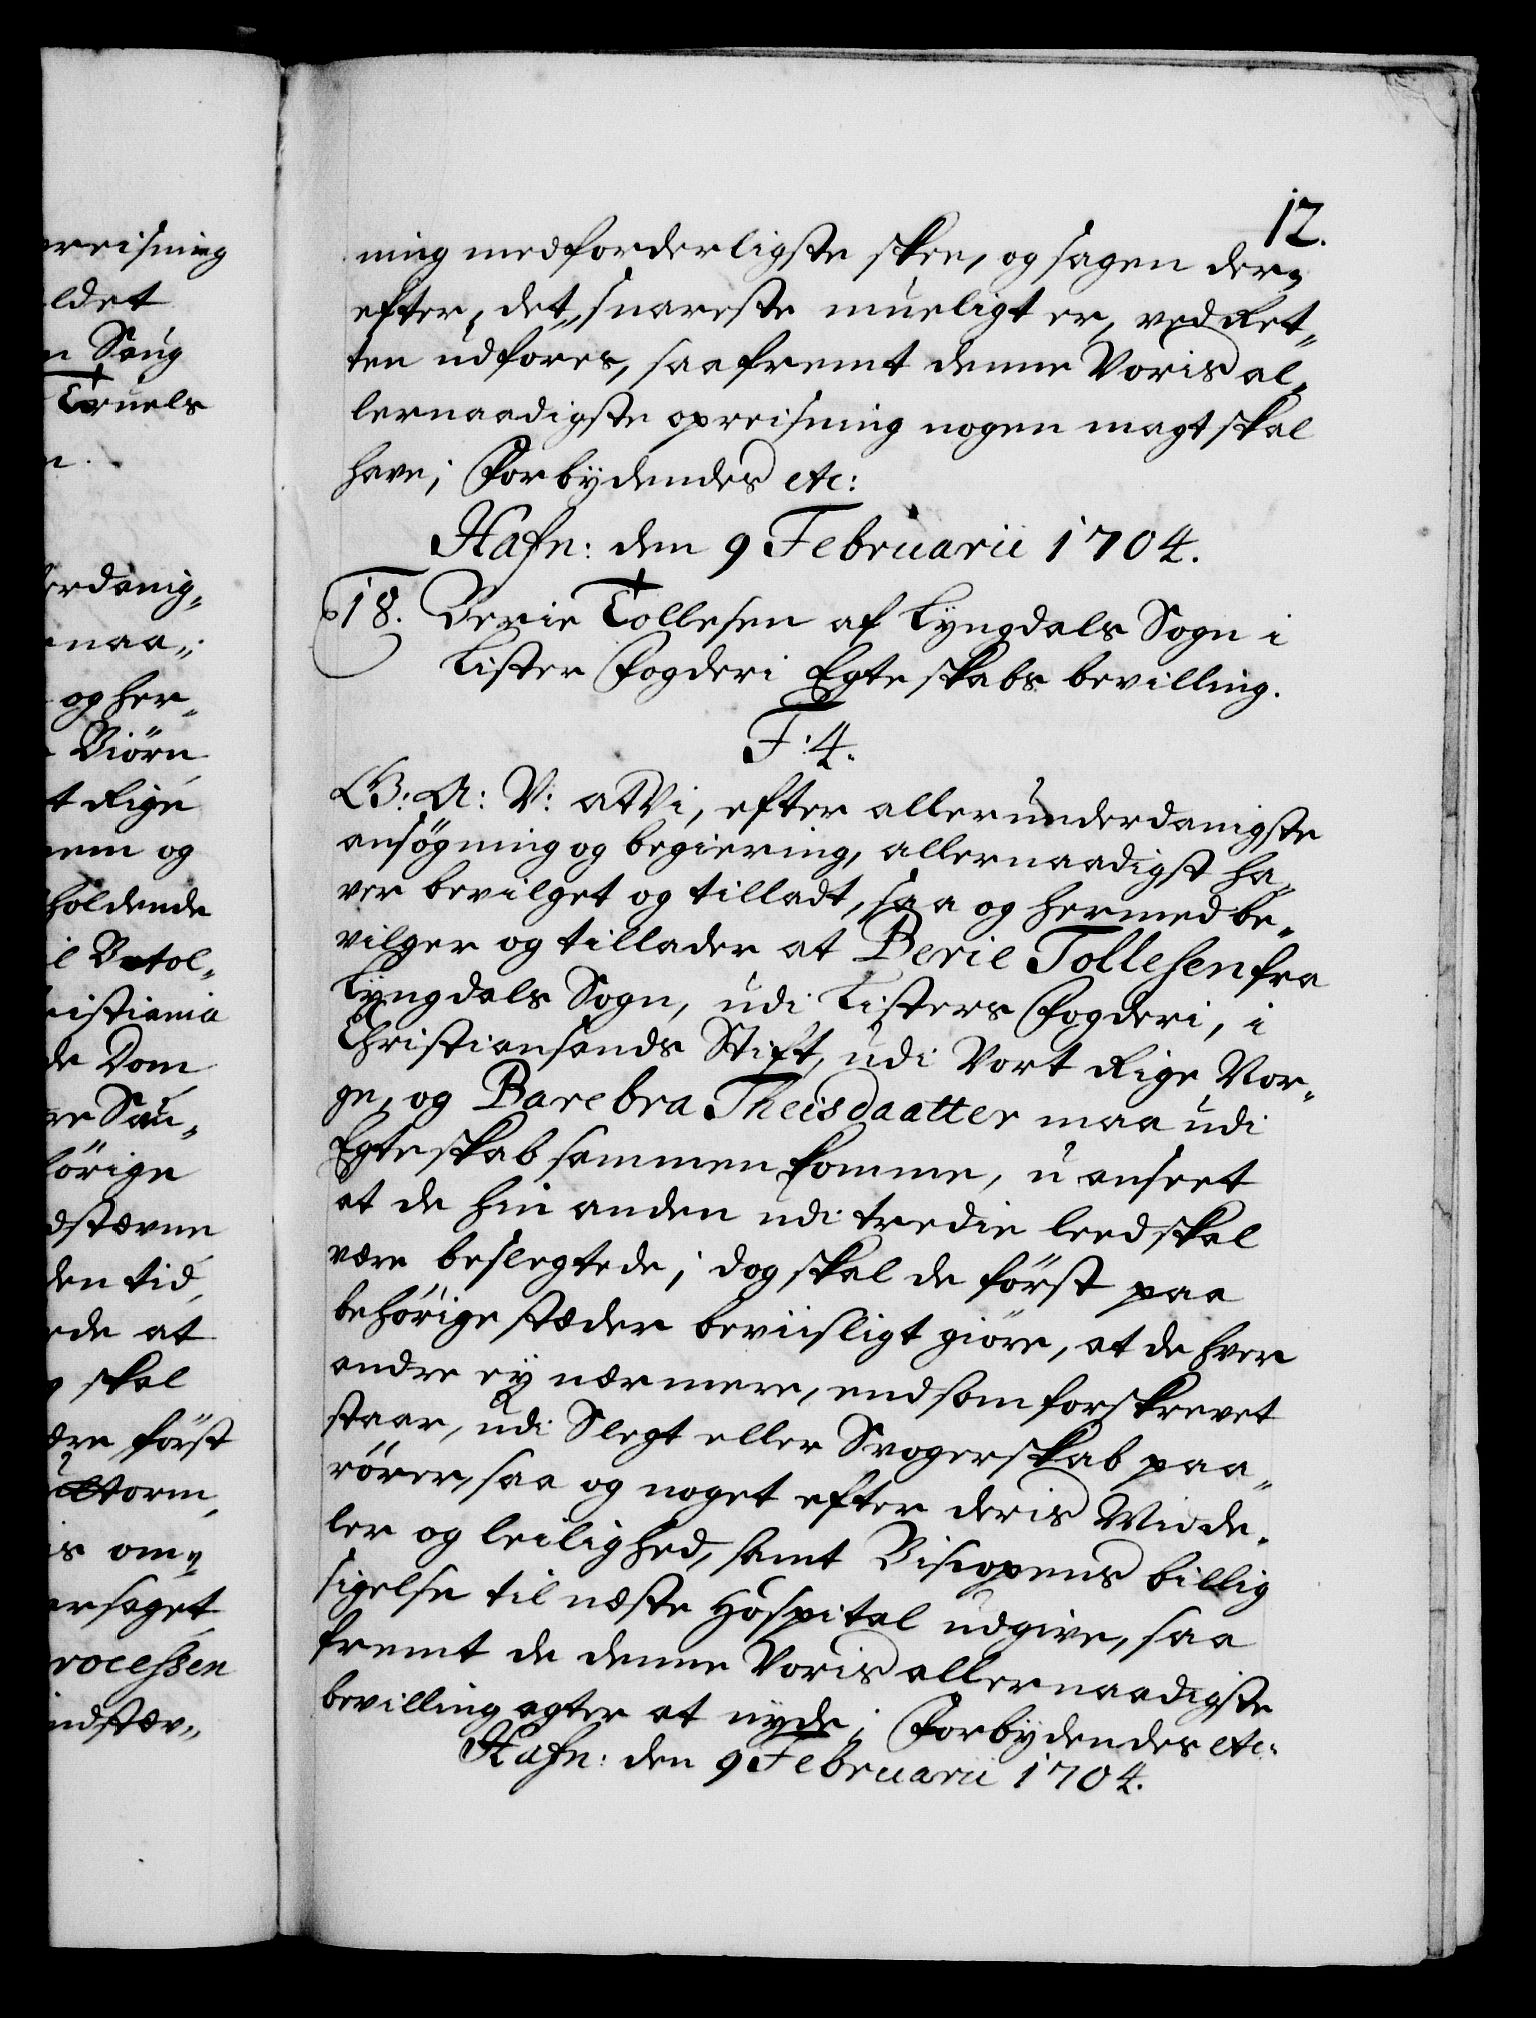 reisning
ldet
n Saug
Truels
n.
erdanig„
naa„
og her„
Biörn
t Rige
nem og
holdende
il Betol„
ristiania
de Dom
re Sau„
hörige
dstævne
den tid
ede at
skal
ære först
Worm
is om„
ersaget
rocessen
indstæv„
12.
ning medforderligste skee, og sagen der„
efter, det snareste mueligt er, ved Ret„
ten udføres, saafremt denne Voris al„
lernaadigste opreisning nogen magt skal
have; Forbÿdendes etc:
Hafn: den 9 Februarii 1704.
18. Berie Tollesen af Lÿngdals Sogn i
Lister Fogderi Egteskabs bevilling.
F: 4.
G: A: V: at Vi, efter allerunderdanigste
ansögning og begiering, allernaadigst ha„
ver bevilget og tilladt, saa og hermed be„
vilger og tillader at Berie Tollesen fra
Lÿngdals Sogn, udi Listers Fogderi, i
Christiansands Stift, udi Vort Rige Nor„
ge, og Barebra Theisdaatter maa udi
Egteskab sammen komme, u anseet
at de hin anden udi tredie leed skal
være beslegtede; dog skal de först paa
behörige stæder beviisligt giöre, at de hver
andre eÿ nærmere, end som forskrevet
staar, udi Slegt eller Svogerskab paa„
rörer, saa og noget efter deris Midde„
ler og leilighed, samt Biscopens billig
sigelse til næste Hospital udgive, saa
fremt de denne Voris allernaadigste
bevilling agter at nÿde; Forbÿdendes etc:
Hafn: den 9 Februarii 1704.